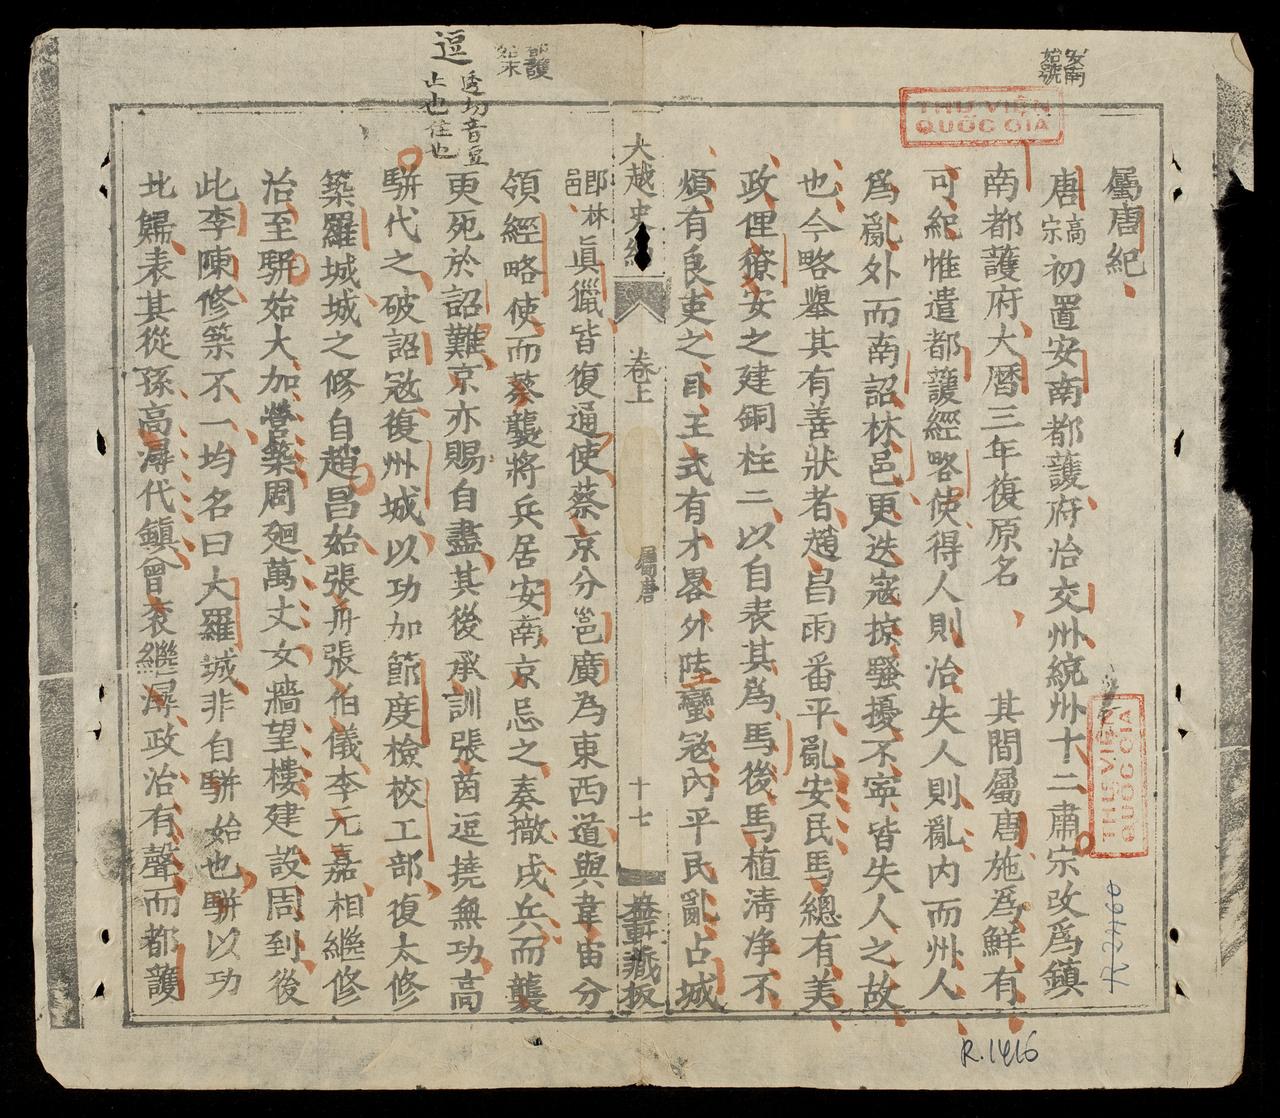 安南
始號
都護
始末
逗
透切音豆
止也住也
THƯ VIỆN
QUỐC GIA
屬唐紀
唐高宗初置安南都護府治交州統州十二肅宗改爲鎮
南都護府大曆三年復原名 其間屬唐施爲鮮有
可紀惟遣都護經略使得人則治失人則亂内而州人
爲亂外而南詔林邑更迭寇掠騷擾不寧皆失人之故
也今略舉其有善狀者趙昌雨番平亂安民馬總有美
政俚獠安之建銅柱二以自表其爲馬後馬植清净不
煩有良吏之目王式有才畧外陸蠻寇内平民亂占城
大越史約
卷上
屬唐
十七
藏板
即林邑眞獵皆復通使蔡京分邕廣为東西道與韋宙分
領經略使而蔡襲將兵居安南京忌之奏撤戍兵而襲
更死於詔難京亦賜自盡其後承訓張茵逗撓無功高
駢代之破詔寇復州城以功加節度檢校工部復太修
築羅城城之修自趙昌始張舟張伯儀李元嘉相繼修
治至駢始大加營築周廻萬丈女牆望樓建設周到後
此李陳修築不一均名曰大羅誠非自駢始也駢以功
北歸表其從孫高潯代鎮曾袞繼潯政治有聲而都護
THƯ VIỆN
QUỐC GIA
R.1416